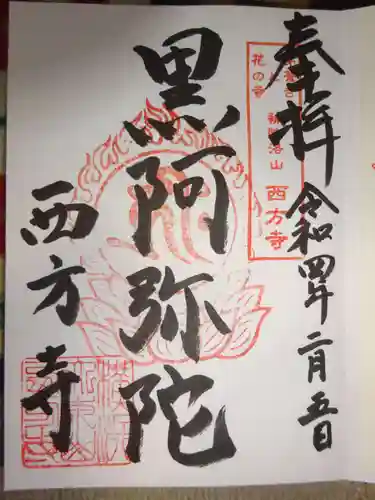 奉拝 令和四年二月五日
花の寺
補陀洛山
西方寺
黒阿弥陀
西方寺